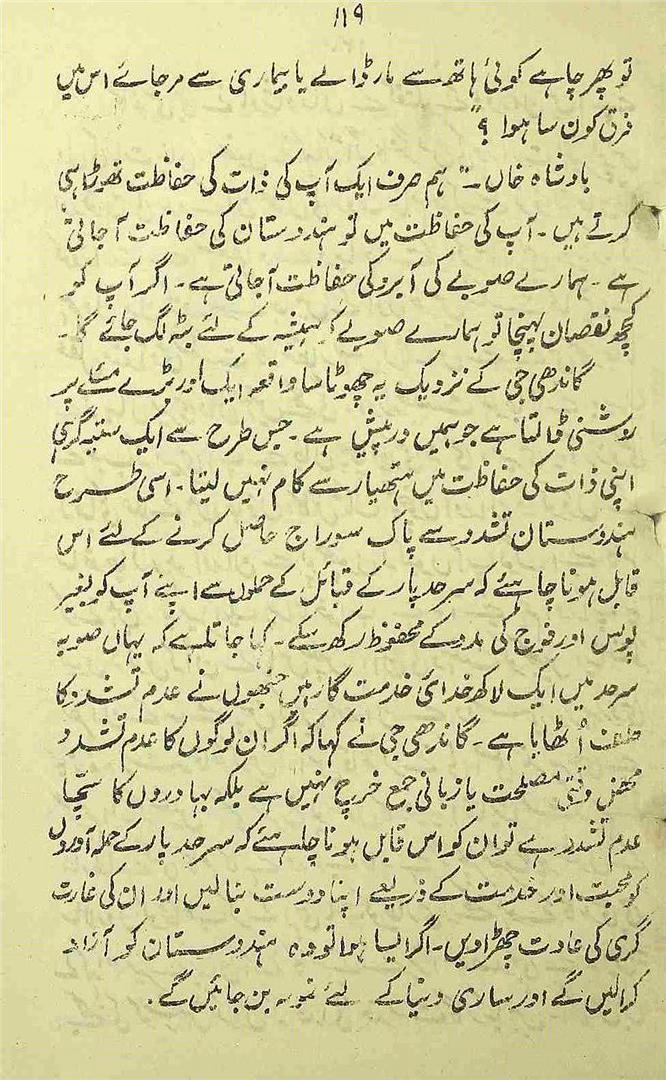 ۱۱۹
تو پھر چاہے کوئی ہاتھ سے مار ڈالے یا بیماری سے مر جائے اس میں
فرق کون سا ہوا ؟"
بادشاہ خاں ۔" ہم صرف ایک آپ کی ذات کی حفاظت تھوڑا ہی
کرتے ہیں ۔ آپ کی حفاظت میں تو ہندوستان کی حفاظت آجاتی
ہے ۔ ہمارے صوبے کی آبرو کی حفاظت آجاتی ہے ۔ اگر آپ کو
کچھ نقصان پہنچا تو ہمارے صوبے کو ہمیشہ کے لئے بٹہ لگ جائے گا ۔
گاندھی جی کے نزدیک یہ چھوٹا سا واقعہ ایک اور بڑے مسئلے پر
روشنی ڈالتا ہے جو ہمیں درپیش ہے ۔ جس طرح سے ایک ستیہ گرہی
اپنی ذات کی حفاظت میں ہتھیار سے کام نہیں لیتا ۔ اسی طرح
ہندوستان تشدد سے پاک سوراج حاصل کرنے کے لئے اس
قابل ہونا چاہئے کہ سرحد پار کے قبائل کے حملوں سے اپنے آپ کو بغیر
پولس اور فوج کی مدد کے محفوظ رکھ سکے ۔ کہا جاتا ہے کہ یہاں صوبہ
سرحد میں ایک لاکھ خدائی خدمت گار ہیں جنھوں نے عدم تشدد کا
حلف اُٹھایا ہے ۔ گاندھی جی نے کہا کہ اگر ان لوگوں کا عدم تشدد
محض وقتی مصلحت یا زبانی جمع خرچ نہیں ہے بلکہ بہادروں کا سچّا
عدم تشدد ہے تو ان کو اس قابل ہونا چاہئے کہ سرحد پار کے حملہ آوروں
کو محبت اور خدمت کے ذریعے اپنا دوست بنالیں اور ان کی غارت
گری کی عادت چھڑا دیں ۔ اگر ایسا ہوا تو وہ ہندوستان کو آزاد
کرالیں گے اور ساری دنیا کے لئے نمونہ بن جائیں گے ۔